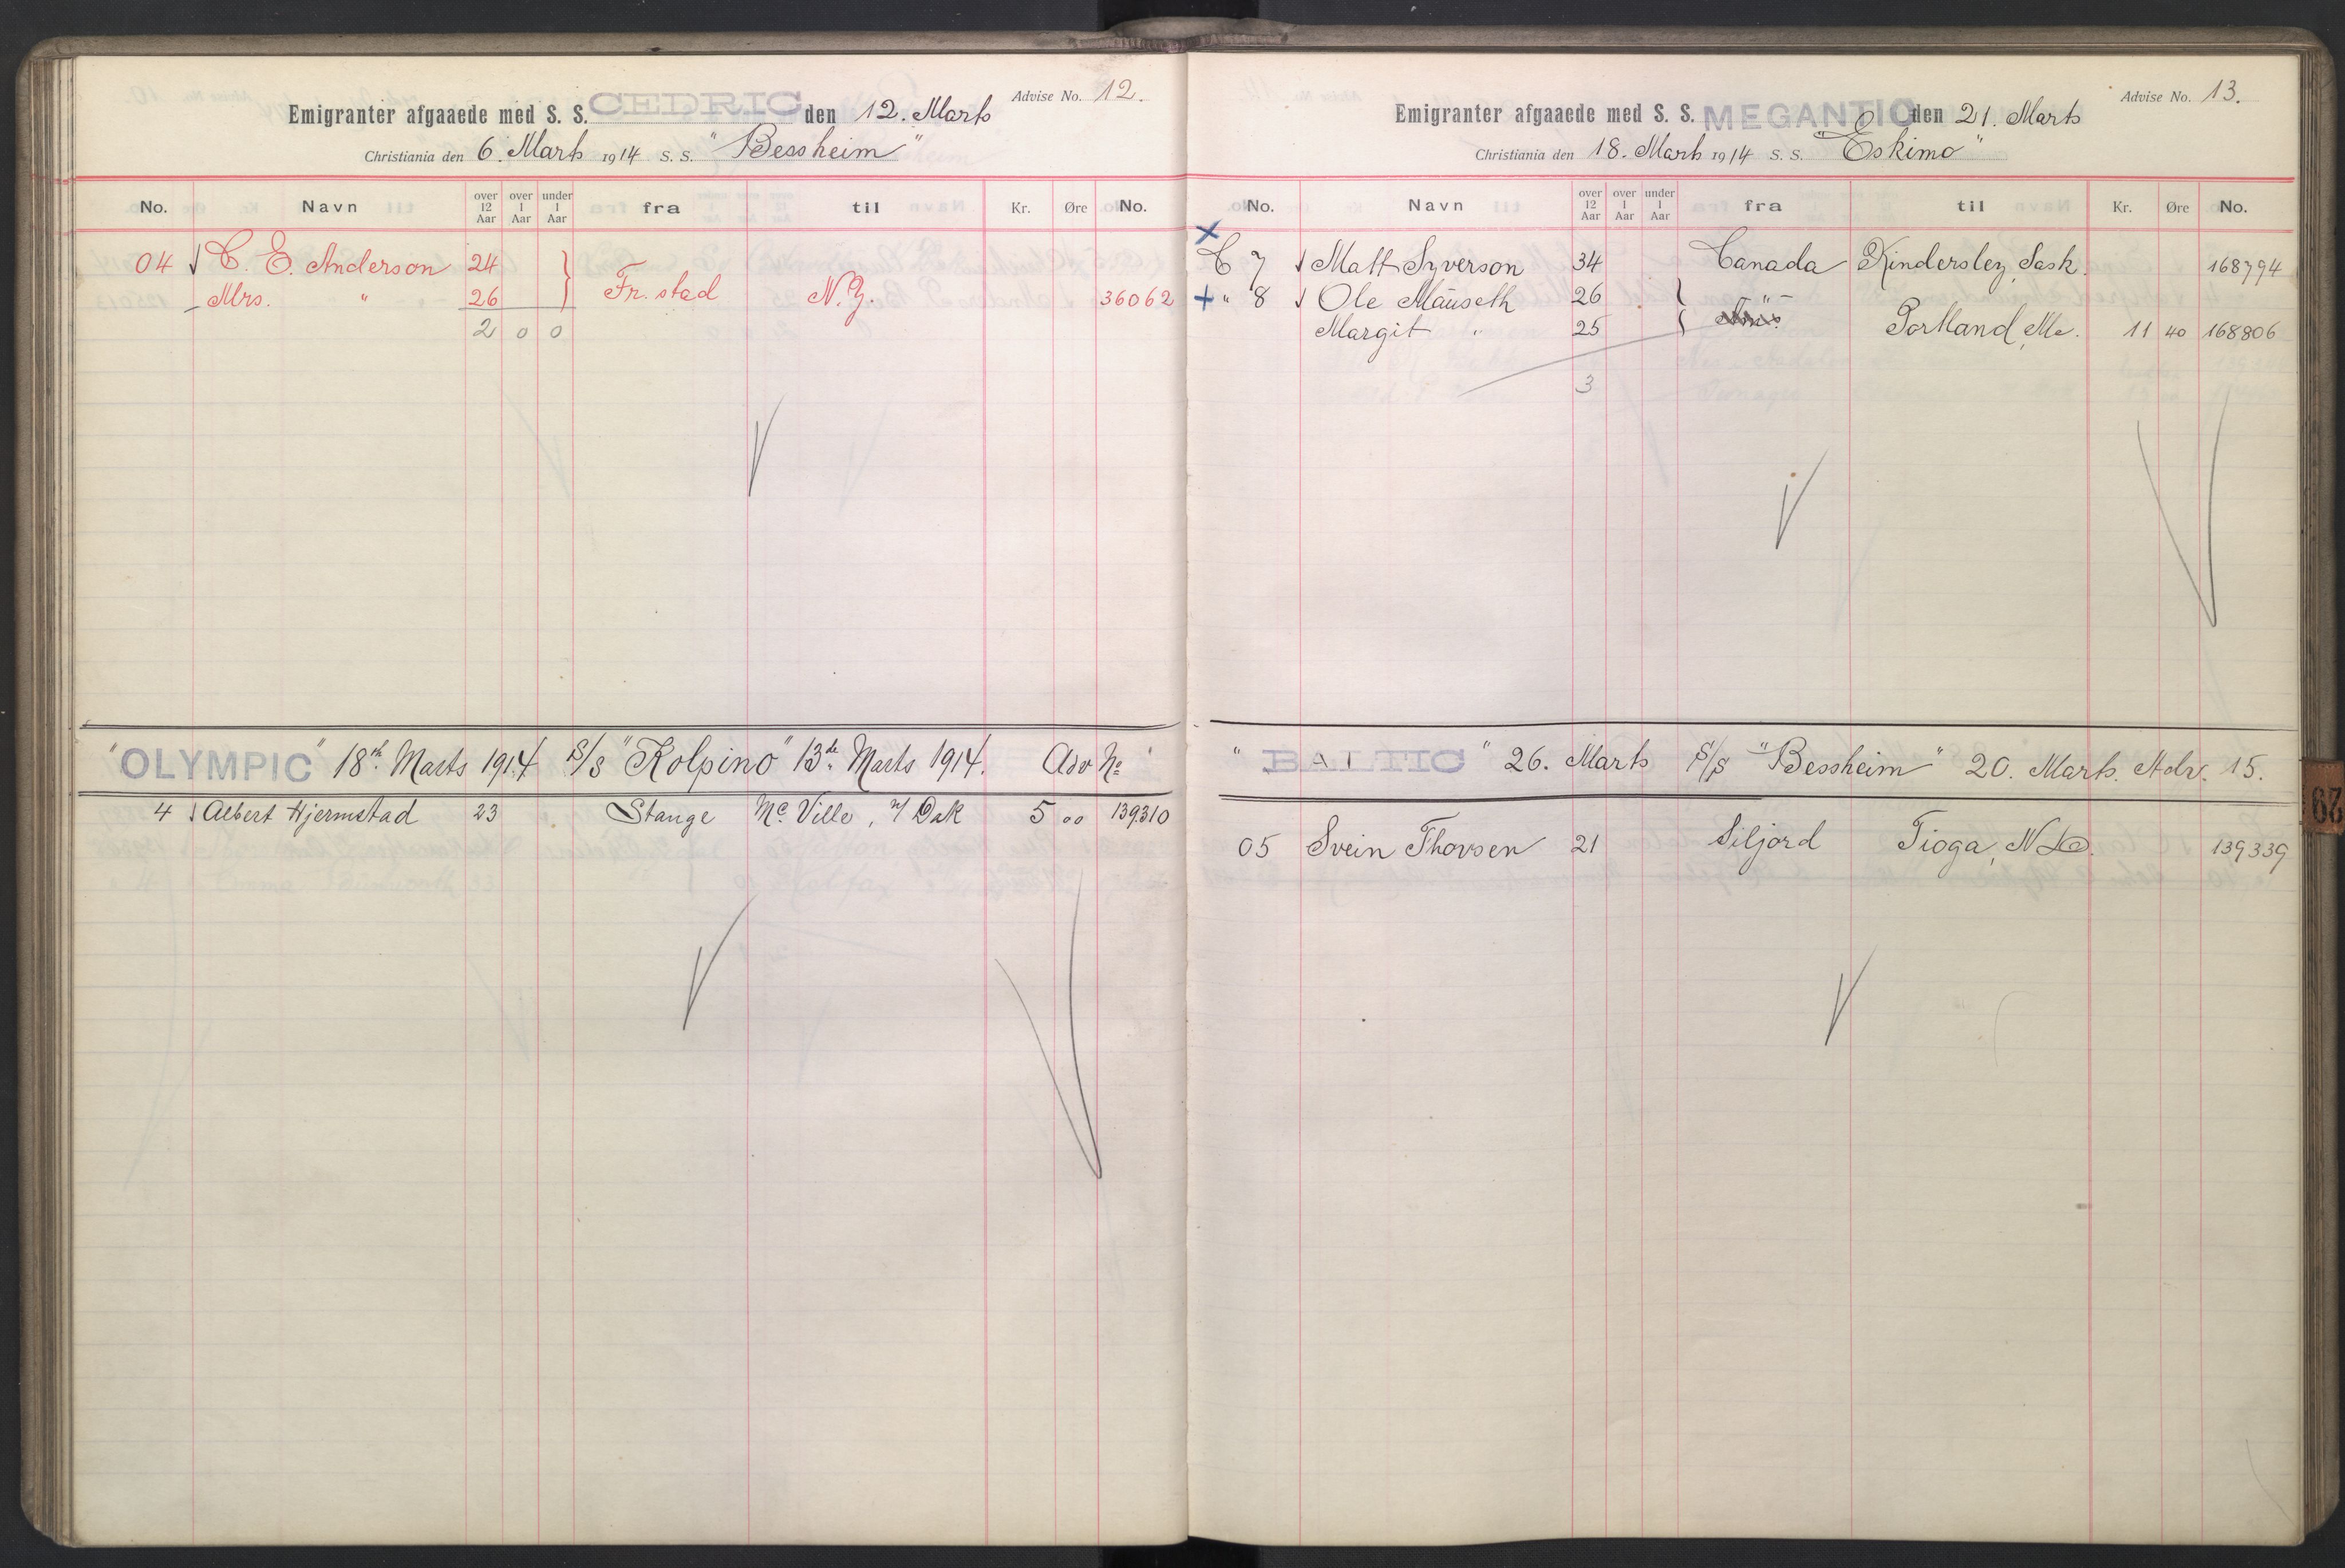 Advise No. 12.
Emigranter afgaaede med S. S. CEDRIC den 12. Marts
Christiania den 6. Marts 1914 S. S. "Bessheim"
No. Navn over 12 Aar over 1 Aar under 1 Aar fra til Kr. Øre No.
04 C. E. Anderson 24
Mrs. " 26 Fr. stad N.Y. 36062
2 0 0
"OLYMPIC" 18th Marts 1914 S/S "Kolpino" 13de Marts 1914. Adv No
4 Albert Hjermstad 23 Stange Mc. Ville, N/ Dak 5 00 139310
Advise No. 13.
Emigranter afgaaede med S. S. MEGANTIC den 21. Marts
Christiania den 18. Marts 1914 S. S. "Eskimo"
No. Navn over 12 Aar over 1 Aar under 1 Aar fra til Kr. Øre No.
x
C 7 Matt Syverson 34 Canada Kindersley, Sask. 168794
+ " 8 Ole Mauseth 26
Margit " 25 Portland, Me. 11 40 168806
3
" BALTIC " 26. Marts S/S "Bessheim" 20. Marts. Adv. 15.
05 Svein Thovsen 21 Siljord Tioga, N.D. 139339
29